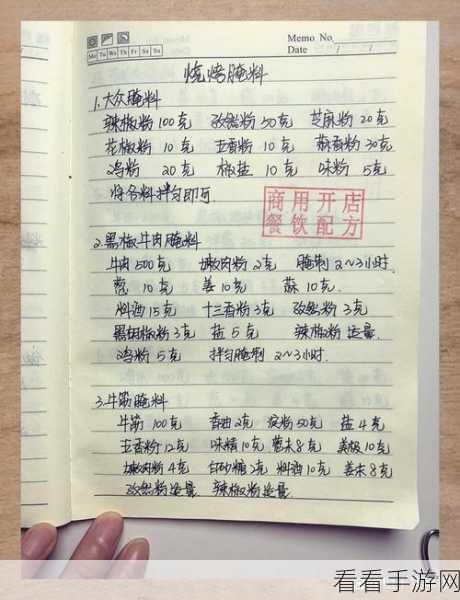 Memo No.
Mo Tu We Th Fr Sa Su
Date / /
烧烤腌料
1.大众腌料
辣椒粉100克 孜然粉50克 芝麻粉20克
花椒粉10克 五香粉10克 蒜香粉30克
鸡粉20克 椒盐10克 味粉5克
将各料拌匀即可
商用开店
餐饮配方
2.黑椒牛肉腌料
牛肉500克 嫩肉粉2克 腌制2~3小时.
葱10克 姜10克 蒜10克
料酒15克 十三香粉3克 孜然粉3克
黑胡椒粉3克 盐5克 辣椒粉适量.
鸡粉5克 拌匀腌制2~3小时.
3.牛筋腌料
牛筋100克 香油2克 淀粉50克 盐4克
五香粉12克 味精10克 葱末8克 10克
嫩肉粉4克 白砂糖2克 料酒10克 姜末8克
孜然粉适量 辣椒粉适量
看看手游网